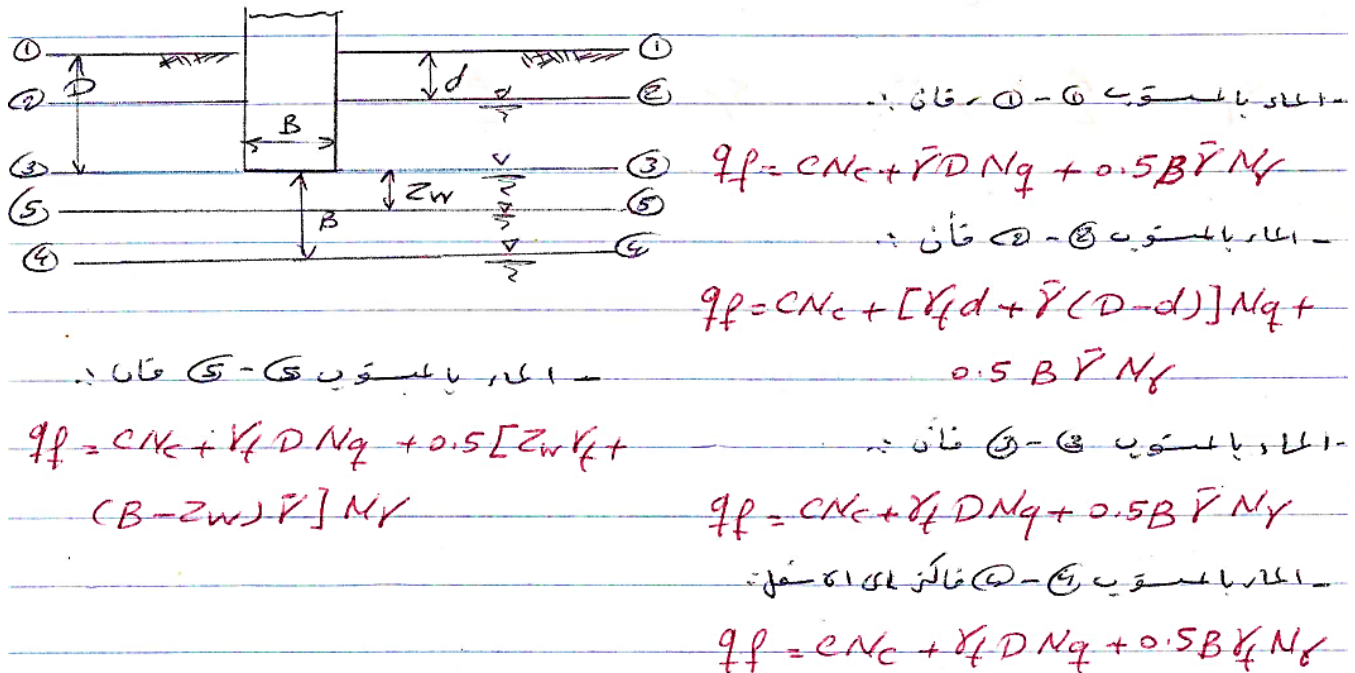 ① ①
D d
② ②
B
③ ③
Zw
⑤ ⑤
B
④ ④
- الماء بالمستوى ① - ① ، فان :.
qf = CNc + γ̄ D Nq + 0.5 B γ̄ Nγ
- الماء بالمستوى ② - ② فأن :.
qf = CNc + [γt d + γ̄ (D-d)] Nq +
0.5 B γ̄ Nγ
- الماء بالمستوى ③ - ③ فأن :.
qf = CNc + γt D Nq + 0.5 B γ̄ Nγ
- الماء بالمستوى ④ - ④ فأكثر الى الاسفل :.
qf = CNc + γt D Nq + 0.5 B γt Nγ
- الماء بالمستوى ⑤ - ⑤ فان :.
qf = CNc + γt D Nq + 0.5 [Zw γt +
(B-Zw) γ̄ ] Nγ